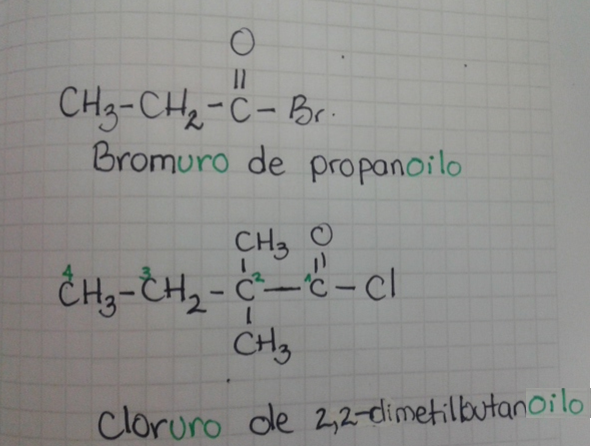 O
||
CH3-CH2-C-Br.
Bromuro de propanoilo
CH3 O
| ||
4 3 2 1
CH3-CH2-C—C-Cl
|
CH3
Cloruro de 2,2-dimetilbutanoilo